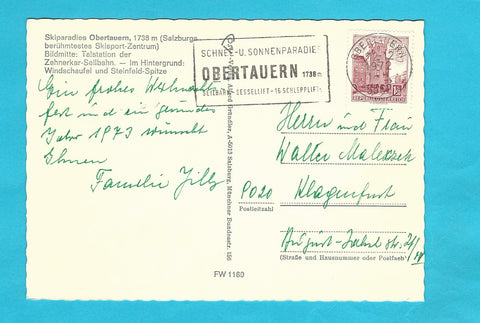 Skiparadies Obertauern, 1738 m (Salzburgs
berühmtestes Skisport-Zentrum)
Bildmitte: Talstation der
Zehnerkar-Seilbahn. — Im Hintergrund:
Windschaufel und Steinfeld-Spitze
Ein frohes Weihnachts
fest und ein gesundes
Jahr 1973 wünscht
Ihnen
Familie
SCHNEE-U. SONNENPARADIES
OBERTAUERN 1738 m
SEILBAHN-SESSELLIFT-16 SCHLEPPLIFTE
OBERTAUERN
REPUBLIK ÖSTERREICH
A-5013 Salzburg, Münchner Bundesstr. 156
Herrn und Frau
Walter
9020 Klagenfurt
Postleitzahl
August-Jaksch str.
(Straße und Hausnummer oder Postfach)
FW 1160